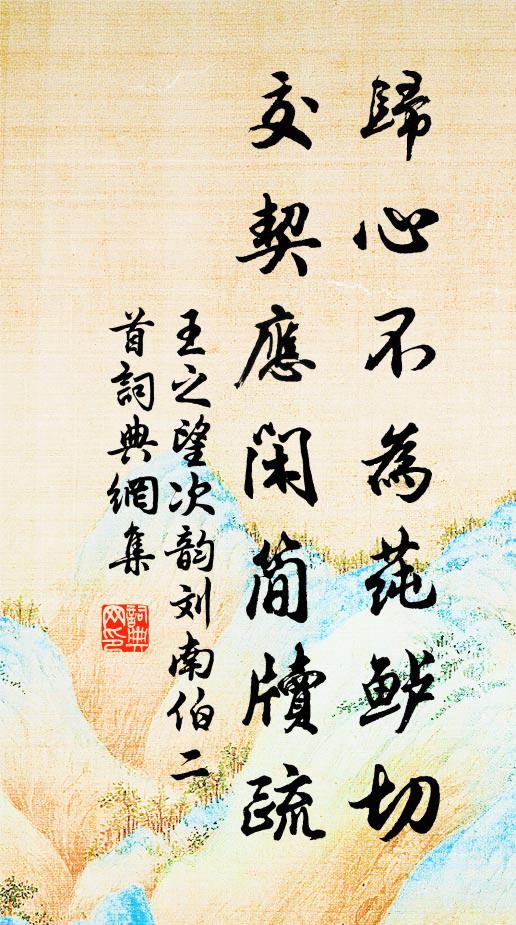 歸心不為蒓鲈切
交契應閑简牘疏
王之望次韵刘南伯二
首詞典網集
詞典